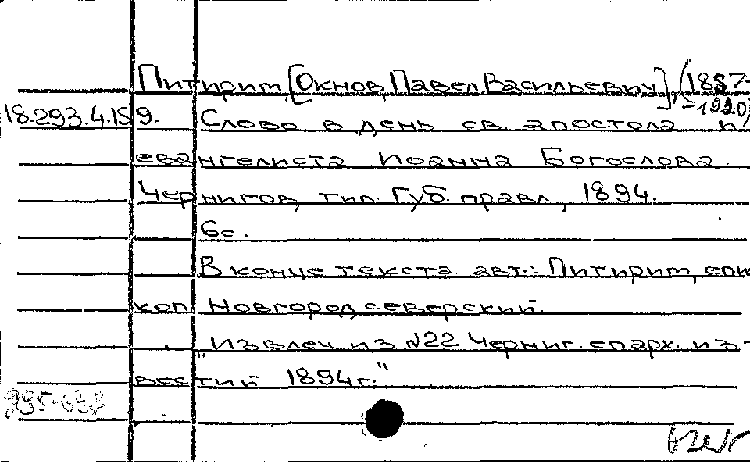 Питирим, [Окнов, Павел Васильевич], (1857-
-1920)
18.293.4.159. Слово в день св. апостола и
евангелиста Иоанна Богослова.
Чернигов, тип. Губ. правл., 1894.
6с.
В конце текста авт.: Питирим, епис
коп Новгородсеверский.
"Извлеч из №22 Черниг. епарх. из-
вестий 1894г."